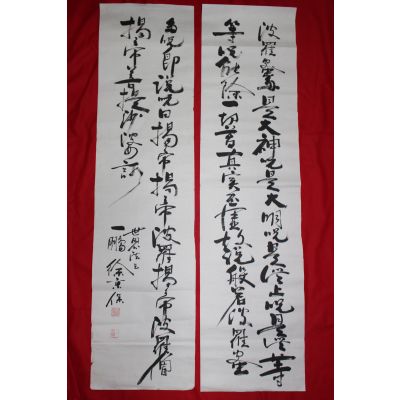 波羅蜜多是大神呪是大明呪是無上呪是無等
等呪能除一切苦真实不虛故說般若波羅蜜
多呪即說呪曰揭帝揭帝波羅揭帝波羅僧
揭帝菩提娑婆訶
一鵬 徐京保